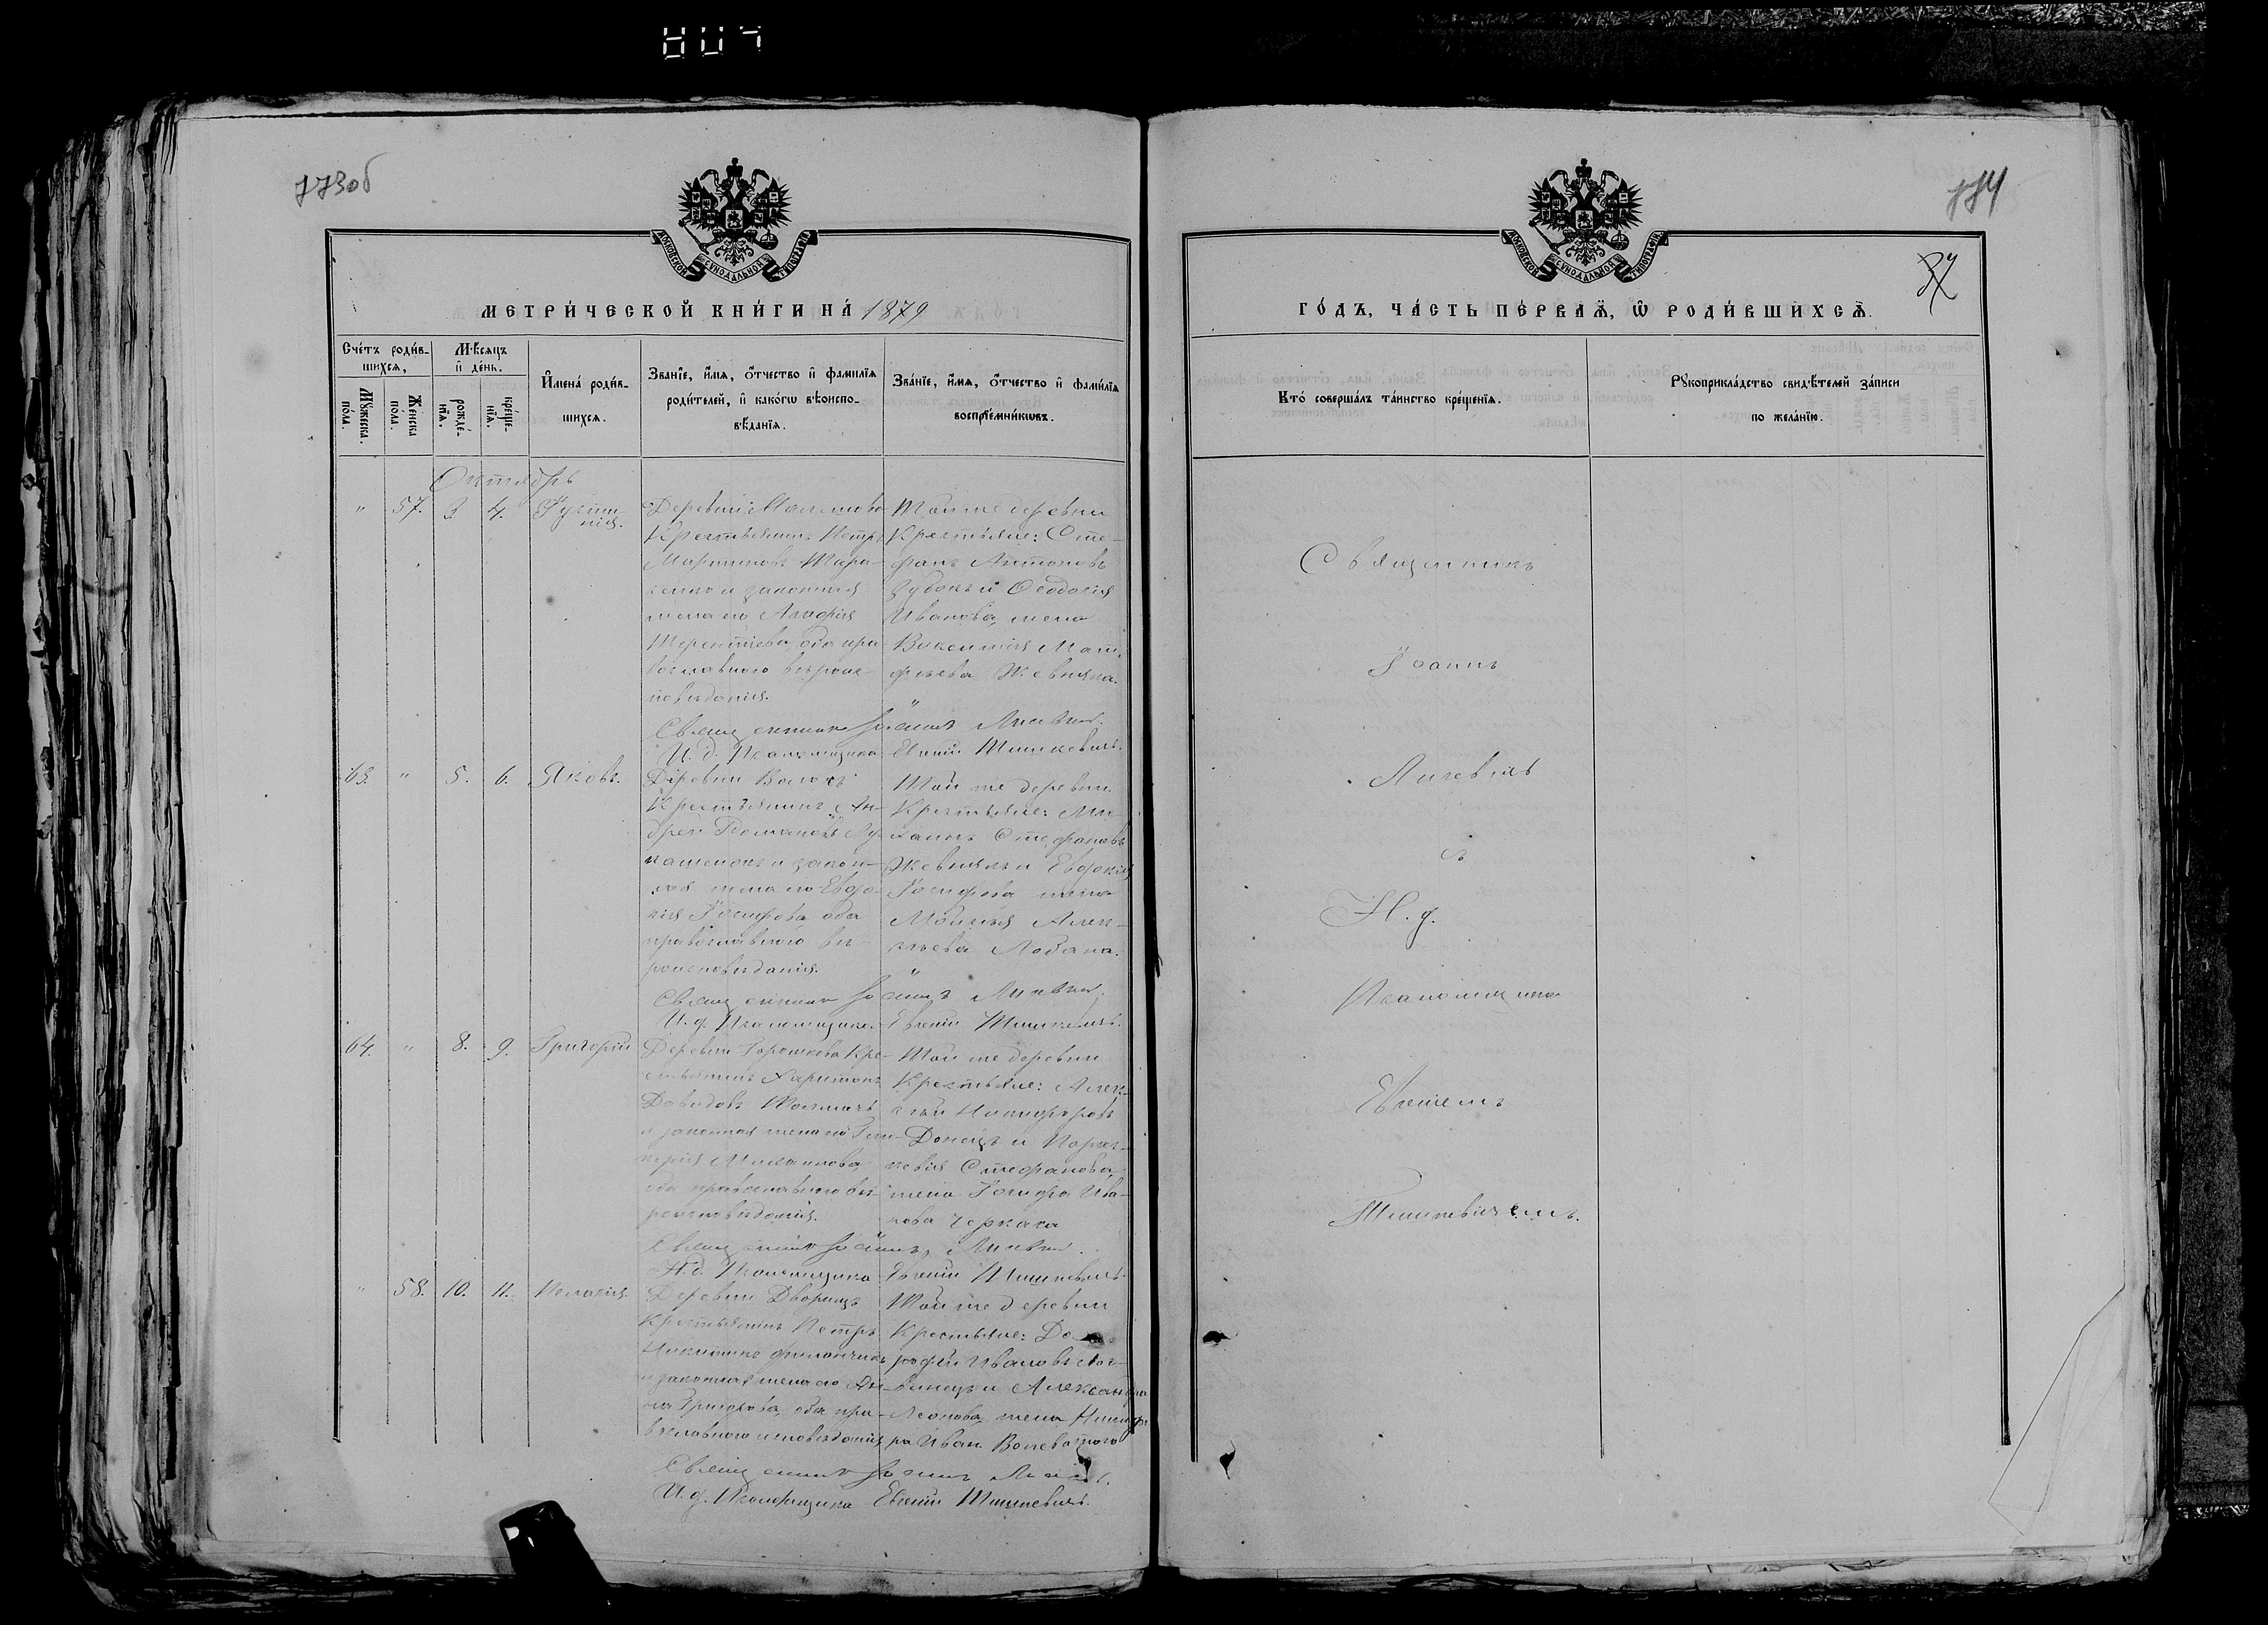 773об
774
МОСКОВСКОЙ СѴНОДАЛЬНОЙ ТИПОГРАФІИ
МЕТРИ́ЧЕСКОЙ КНИ́ГИ НА́ 1879
Сче́тъ роди́в-
шихсѧ,
Мꙋ́жеска
по́ла.
Же́нска
по́ла.
Мѣ́сѧцъ
и҆ де́нь.
рожде́-
нїѧ.
креще́-
нїѧ.
И҆мена̀ роди́в-
шихсѧ.
Зва́нїе, и҆́мѧ, ѻ҆́тчество и҆ фами́лїѧ
роди́телей, и҆ како́гѡ вѣроиспо-
вѣ́данїѧ.
Зва́нїе, и҆́мѧ, ѻ҆́тчество и҆ фами́лїѧ
воспрїе́мникѡвъ.
Октябрь
" 57. 3. 4.
Деревни
Крестьянинъ Петръ
Мартиновъ Тара-
сенко и законная
жена его Агафія
Терентіева, оба пра-
вославнаго вѣроис-
повѣданія.
Той же деревни
Крестьяне: Сте-
фанъ Антоновъ
Зубокъ и Ѳеодосія
Иванова, жена
Викентія Мат-
фѣева Жевняка.
Священникъ Іоаннъ
И. д. Псаломщика Евгеній Тишкевичъ.
63. " 5. 6. Яковъ.
Деревни Волокъ
Крестьянинъ Ан-
дрей Романовъ Лу-
кашенокъ и закон-
ная жена его Евдо-
кія Іосифова, оба
православнаго вѣ-
роисповѣданія.
Той же деревни
Крестьяне: Ми-
хаилъ Стефановъ
Жевнякъ и Евдокія
Іосифова жена
Моисея Алек-
сѣева Лобана.
Священникъ Іоаннъ
И. д. Псаломщика Евгеній Тишкевичъ.
64. " 8. 9. Григорій
Деревни Горошкова Кре-
стьянинъ Харитонъ
Давидовъ
и законная жена его Гли-
керія Михаилова,
оба православнаго вѣ-
роисповѣданія.
Той же деревни
Крестьяне: Алек-
сѣй Никифоровъ
Донецъ и Парас-
кевія Стефанова,
жена Іосифа Ива-
нова Черкаса
Священникъ Іоаннъ
И. д. Псаломщика Евгеній Тишкевичъ.
" 58. 10. 11. Пелагія.
Деревни Дворецъ
Крестьянинъ Петръ
Никитинъ Филончикъ
и законная жена его Ан-
на Григорьева, оба пра-
вославнаго исповѣданія
Той же деревни
Крестьяне: До-
рофей Ивановъ
и Александра
Леонова, жена Никифо-
ра Иван.
Священникъ Іоаннъ
И. д. Псаломщика Евгеній Тишкевичъ.
МОСКОВСКОЙ СѴНОДАЛЬНОЙ ТИПОГРАФІИ
ГО́ДЪ, ЧА́СТЬ ПЕ́РВАѦ, Ѽ РОДИ́ВШИХСѦ.
Кто̀ соверша́лъ та́инство креще́нїѧ.
Рꙋкоприкла́дство свидѣ́телей за́писи
по жела́нїю.
Священникъ
Іоаннъ
съ
И. д.
Псаломщика
Евгеніемъ
Тишкевичемъ.